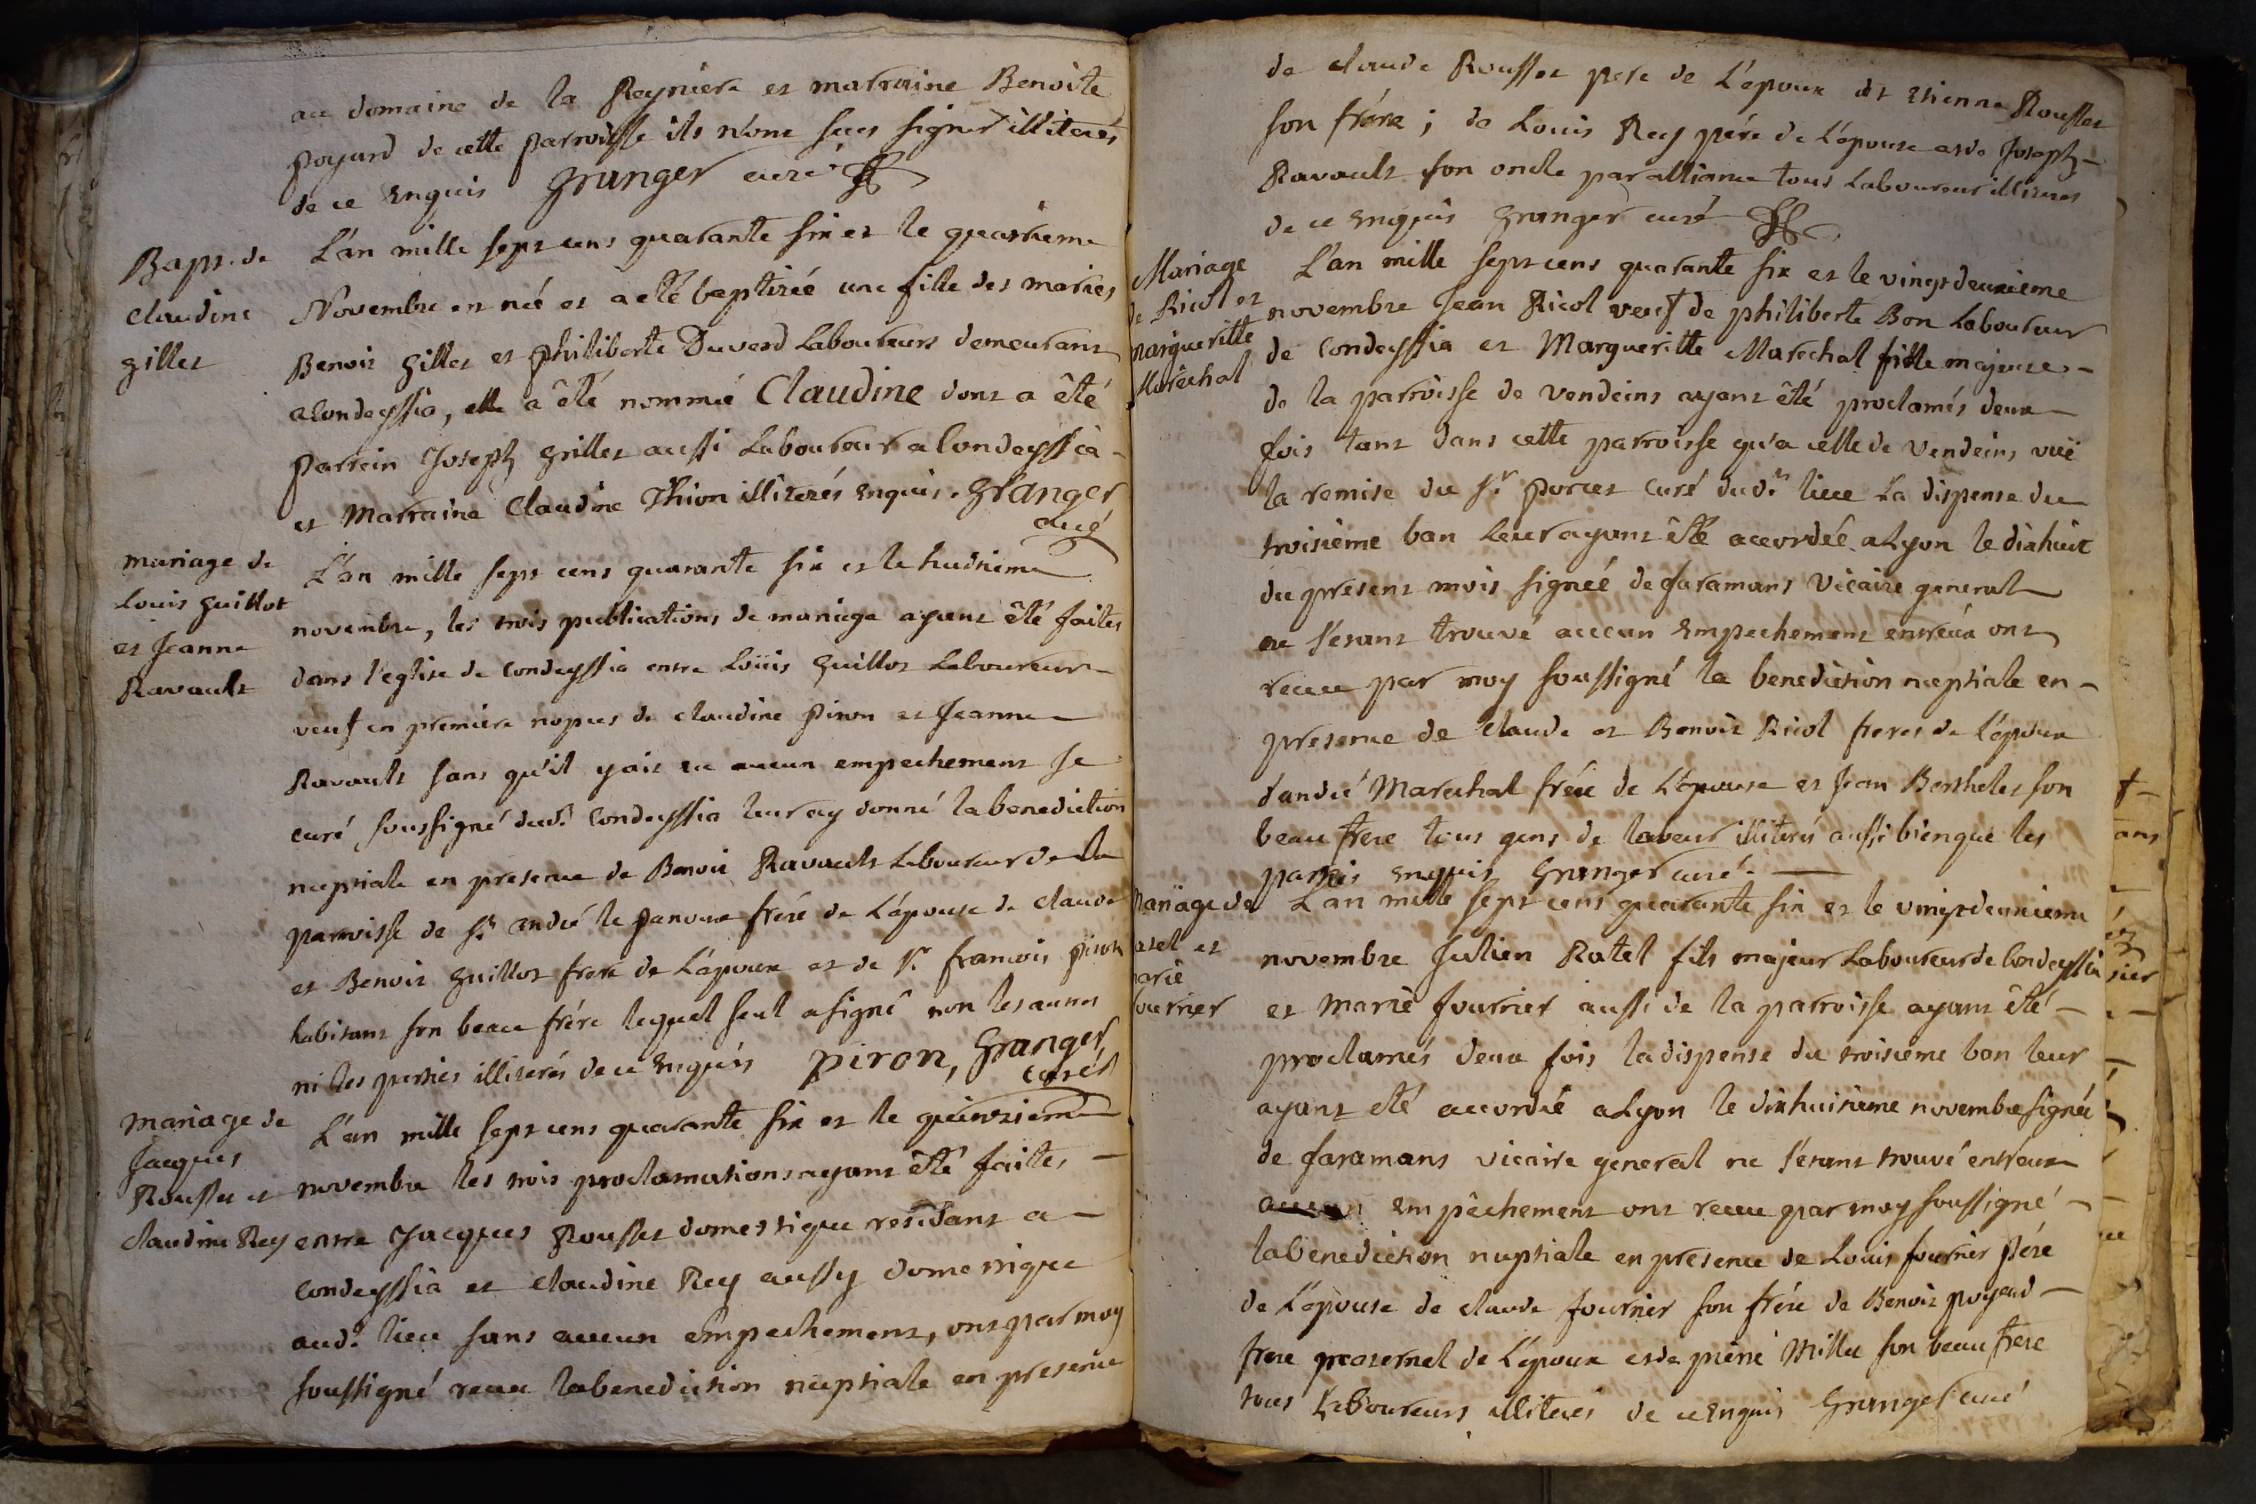 au domaine de la Reyniere et marraine Benoite
poyard de cette parroisse ils n'ont sceu signer illiterés
de ce enquis Granger curé
Bapt. de
Claudine
gillet
L'an mille sept cens quarante six et le quatrieme
Novembre est née et a eté baptizée une fille des maries
Benoit gillet et philiberte Duverd Laboureurs demeurant
a Condeyssia, elle a êté nommée Claudine dont a êté
parrein Joseph Grillet aussi Laboureur a Condeyssia
et Marraine Claudine Thion illiterés enquis. Granger
curé
mariage de
Louis guillot
et Jeanne
Ravault
L'an mille sept cens quarante six et le huitieme
novembre, les trois publications de mariage ayant êté faites
dans l'eglise de Condeyssia entre Loüis Guillot Laboureur
veuf en premiere nopces de claudine piron et Jeanne
Ravault sans qu'il y ait eu aucun empechement Je
curé soussigné dud.t Condeyssia leur ay donné la benediction
nuptiale en presence de Benoit Ravault Laboureur de la
parroisse de S.t andré le panoux frére de L'épouse de claude
et Benoit guillot frere de L'époux et de S.r francois piron
habitant son beau frére lequel seul a signé non les autres
ni les parties illiterés de ce enquis piron, Granger
curé
mariage de
Jacques
Rousset et
claudine Rey
L'an mille sept cens quarante six et le quinzieme
novembre les trois proclamations ayant êté faites
entre Jacques Rousset domestique residant a
Condeyssia et claudine Rey aussy domestique
aud.t lieu sans aucun empechement, ont par moy
soussigné receu la benediction nuptiale en presence
de claude Rousset pere de L'époux et etienne Rousset
son frére; de Louis Rey pére de L'épouse et de Joseph
Ravault son oncle par alliance tous Laboureur illiterés
de ce enquis Granger curé
Mariage
de Ricol et
Margueritte
Maréchal
L'an mille sept cens quarante six et le vingt deuxieme
novembre Jean Ricol veuf de philiberte Bon Laboureur
de Condeyssia et Margueritte Marechal fille majeure
de la parroisse de Vendeins ayant êté proclamés deux
fois tant dans cette parroisse qu'a celle de Vendeins, vuë
la remise du S.r porcet curé dud.t lieu La dispense du
troisiéme ban Leur ayant êté accordée a Lyon le dixhuit
du present mois signée de faramans Vicaire general
ne s'etant trouvé aucun empechement entréux ont
receu par moy soussigné la benediction nuptiale en
presence de claude et Benoit Ricol freres de L'époux
d'andré Marechal frére de L'épouse et Jean Berthelet son
beau frere tous gens de labeur illiterés aussi bien que les
parties enquis Granger curé.
Mariage de
atel et
arie
ourrier
L'an mille sept cens quarante six et le vingt deuxieme
novembre Julien Ratel fils majeur Laboureur de Condeyssia
et Marie fourrier aussi de la parroisse ayant êté
proclamés deux fois la dispense du troisieme ban leur
ayant eté accordée a Lyon le dixhuitieme novembre signée
de faramans vicaire general ne s'etant trouvé entreux
aucun empêchement ont receu par moy soussigné
la benediction nuptiale en presence de Louis fourrier pére
de L'épouse de claude fourrier son frére de Benoit poyard
frere maternel de L'époux et de pierre Millet son beau frere
tous Laboureurs illiterés de ce enquis Granger curé